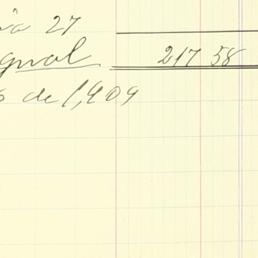 27
gual 217 58
de 1,909